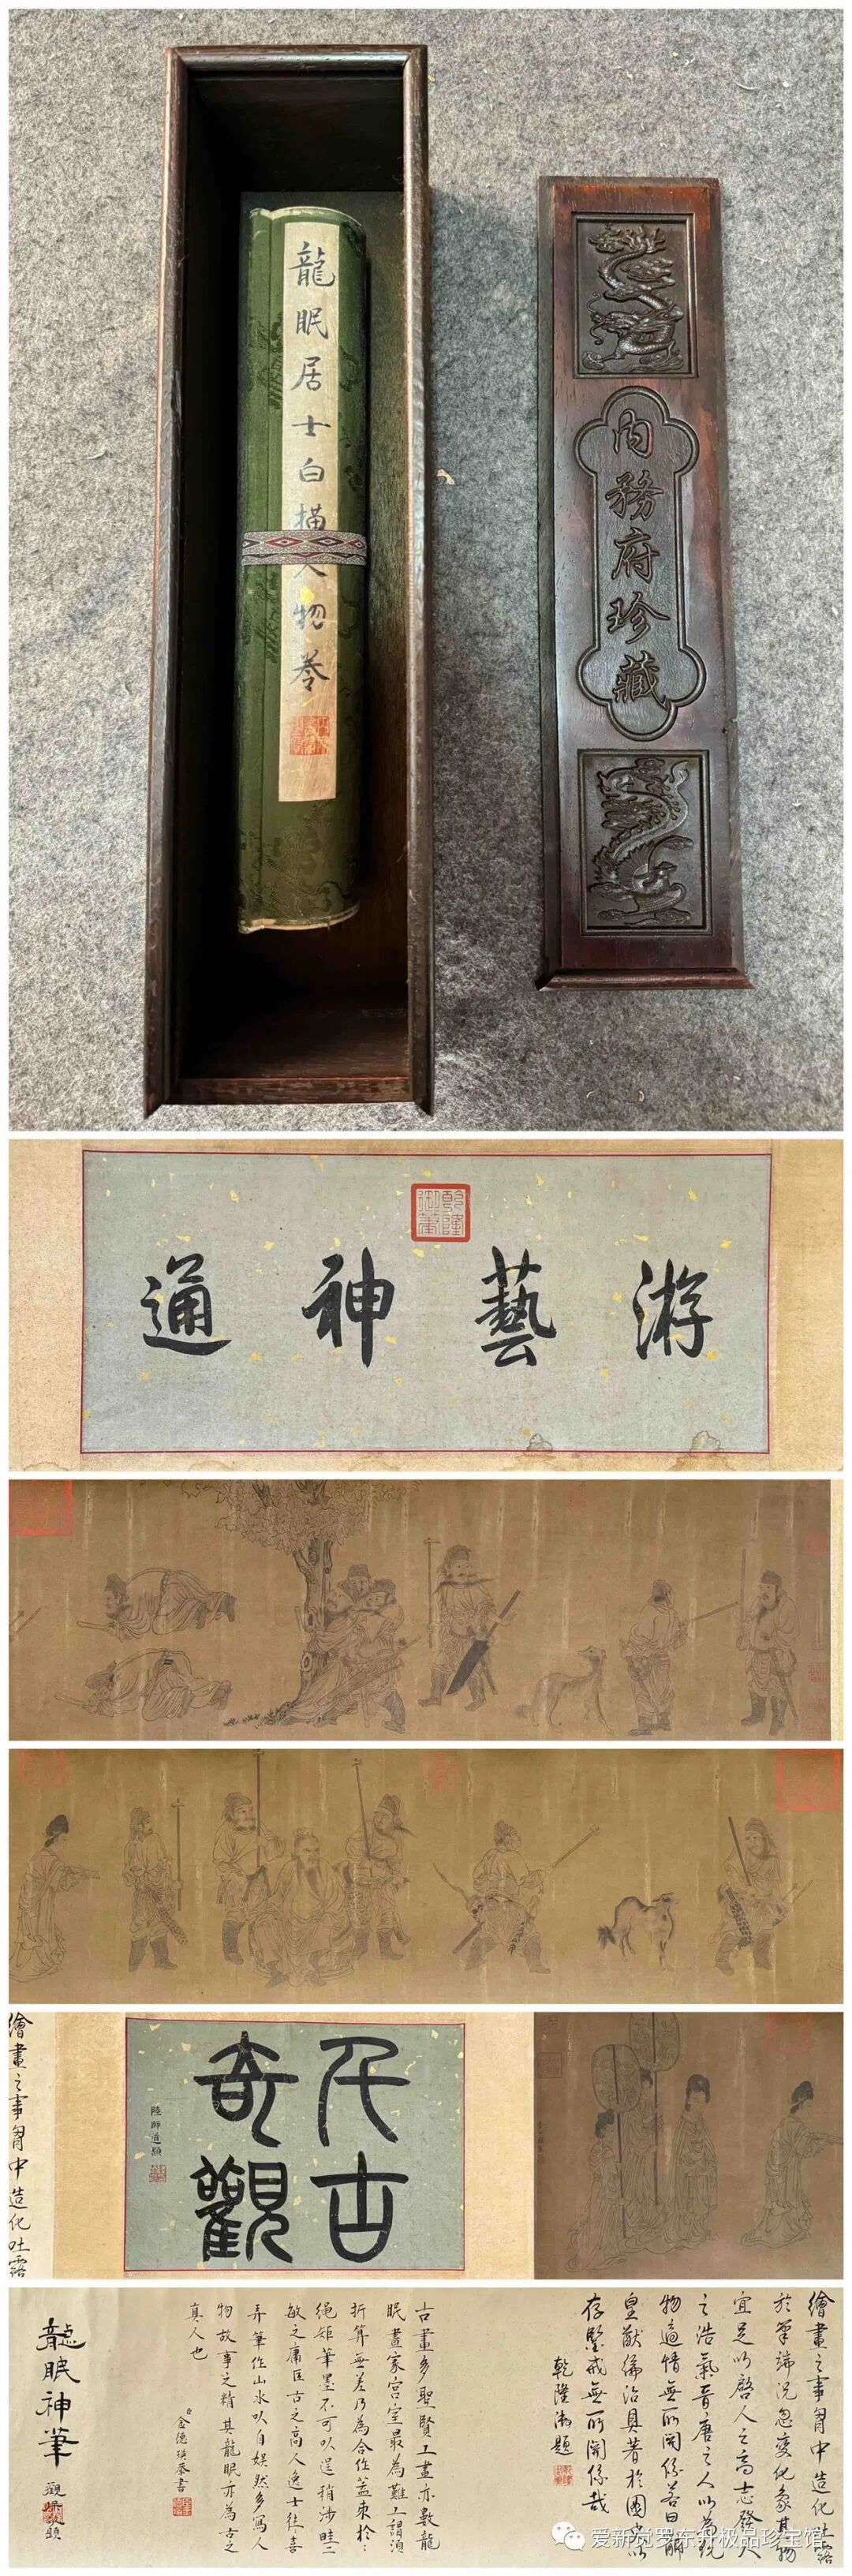 龍眠居士白描人物卷
内務府珍藏
乾隆御筆
游藝神通
千古
奇觀
陸師道題
繪畫之事胷中造化吐露
繪畫之事胷中造化吐露
於筆端況忽變化象其物
宜足以啓人之高志發人
之浩氣晉唐之人以為玩
物適情無所関係若曰黼
皇猷偹治具著於圖史以
存鑒戒無所関係哉
乾隆御題
古畫多聖賢工畫亦數龍
眠畫家宮室最為難工謂須
折算無差乃為合作盖束於
繩矩筆墨不可以逞稍涉畦
敏之庸匠古之高人逸士往喜
弄筆作山水以自娱然多寫人
物故事之精其龍眠亦為古之
真人也
金德瑛恭書
龍眠神筆
爱新觉罗东升极品珍宝馆